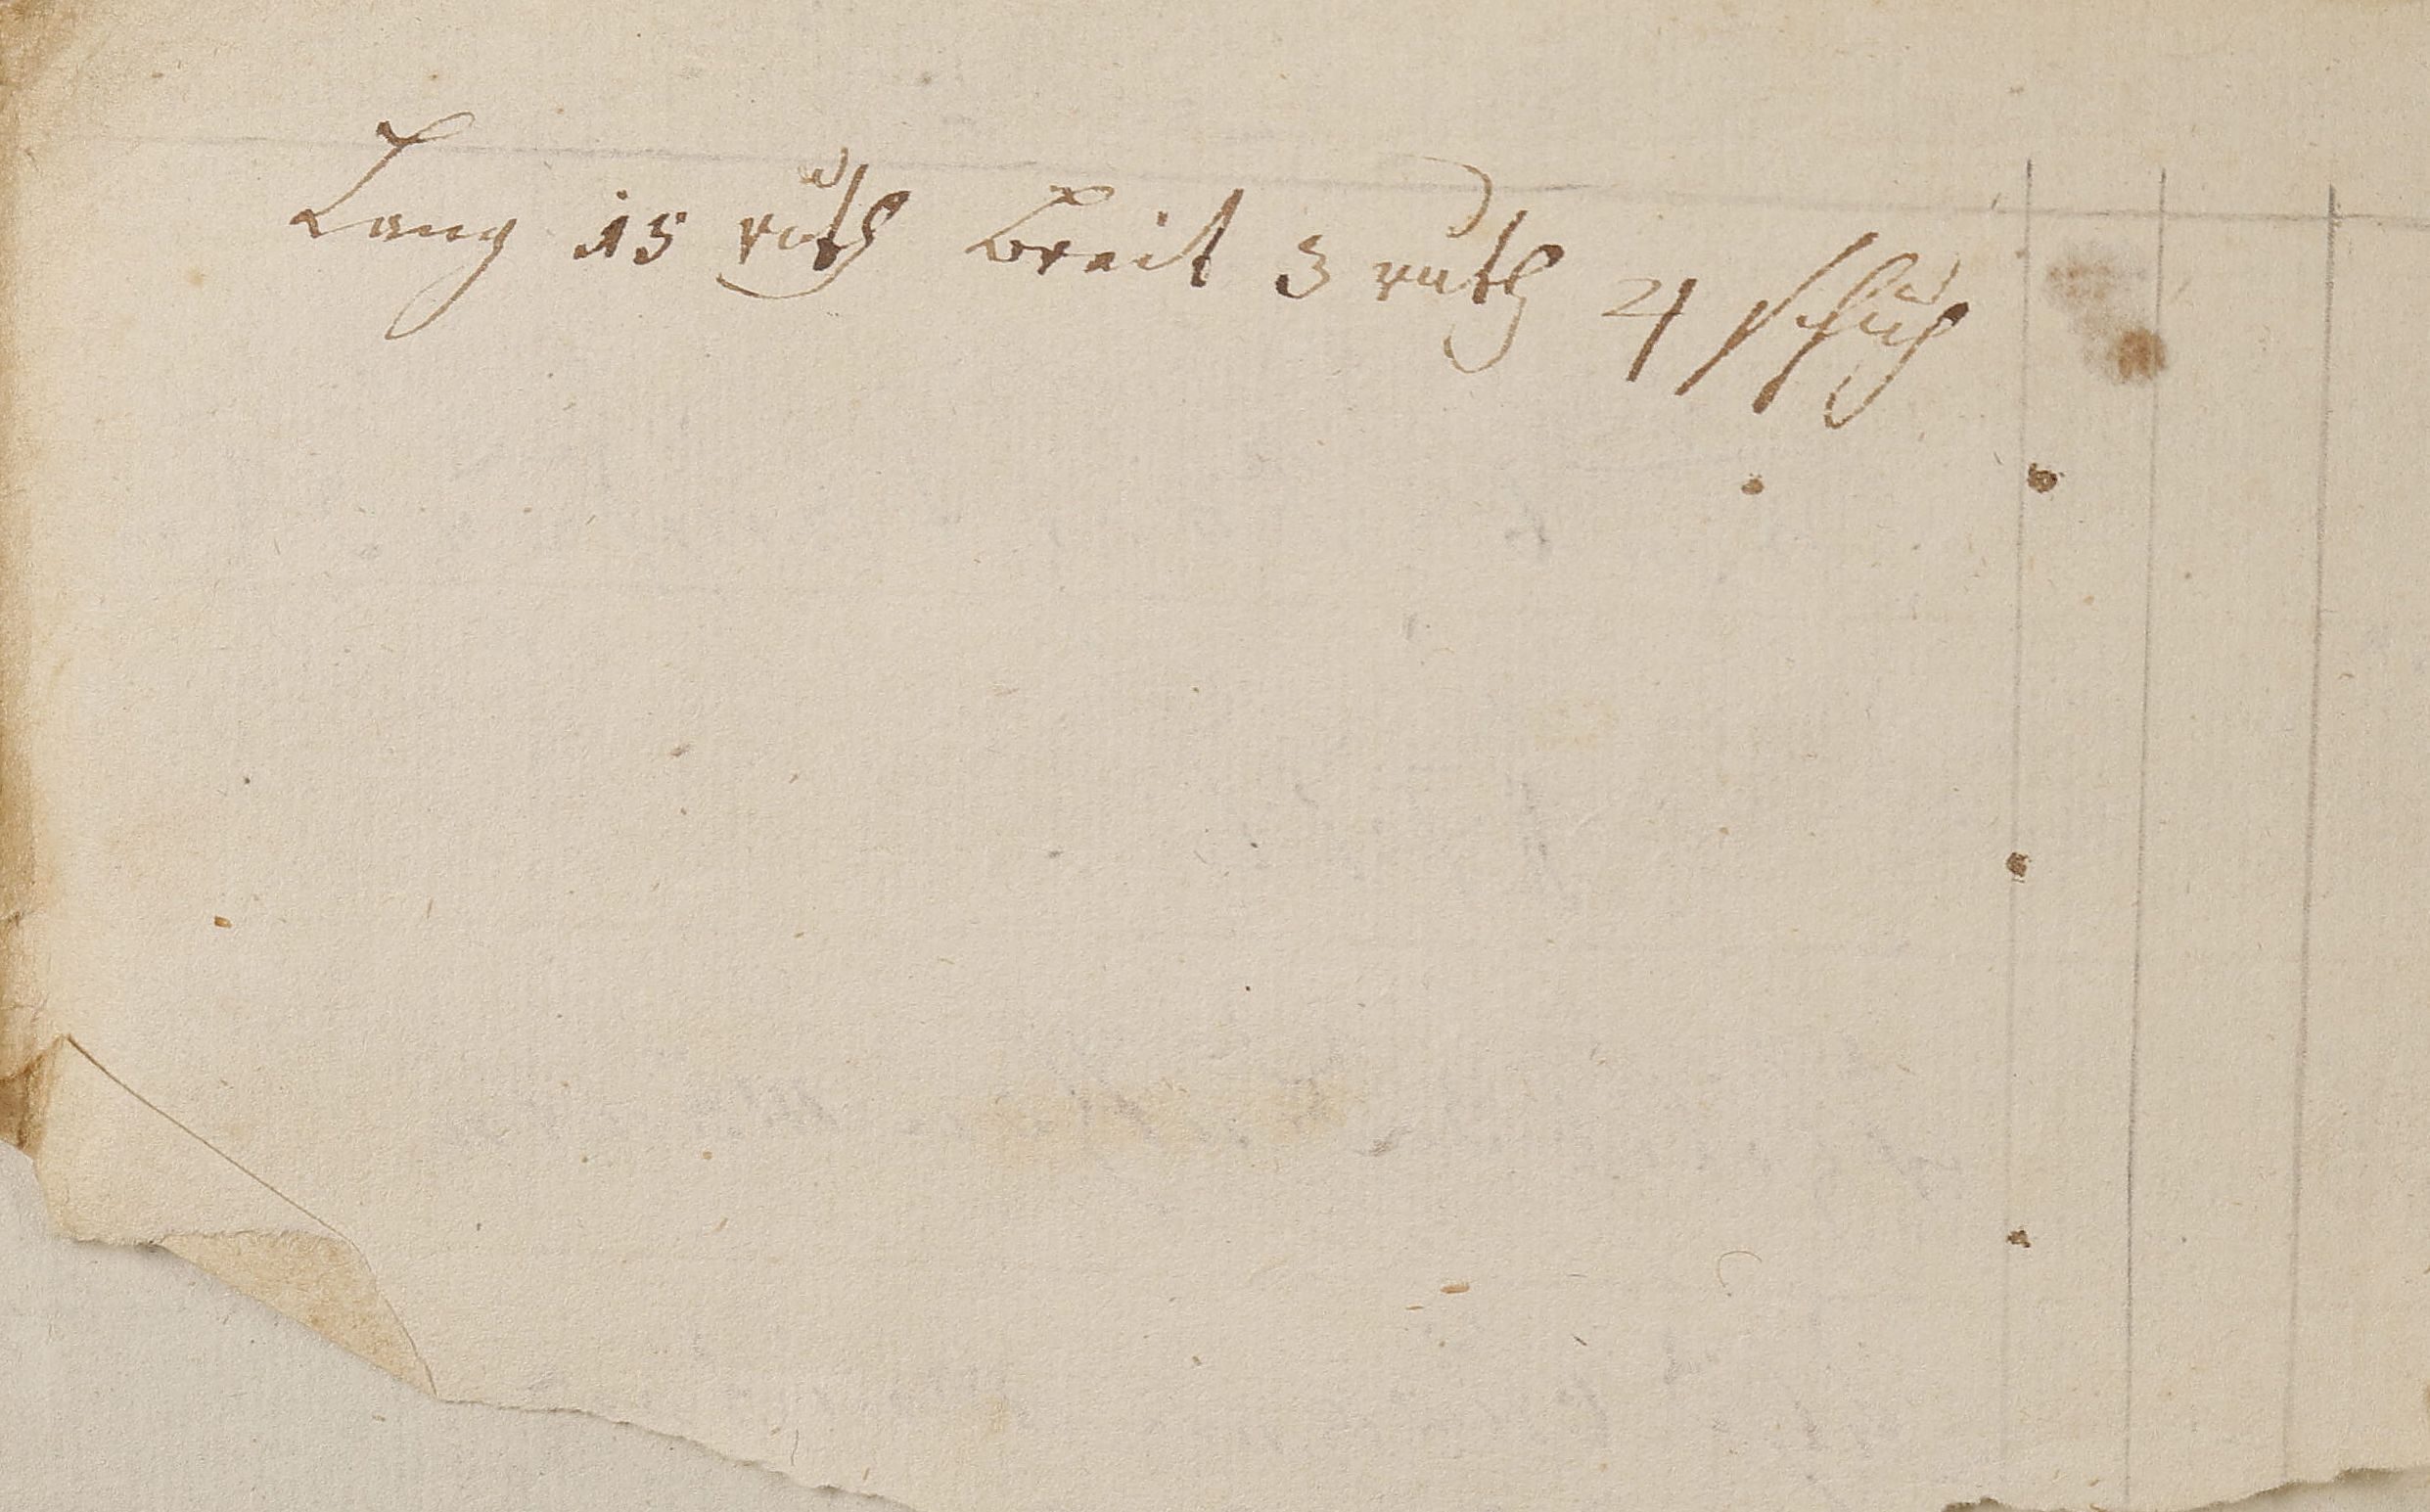 Lang 15 ruth Breit 3 ruth 4 schuh